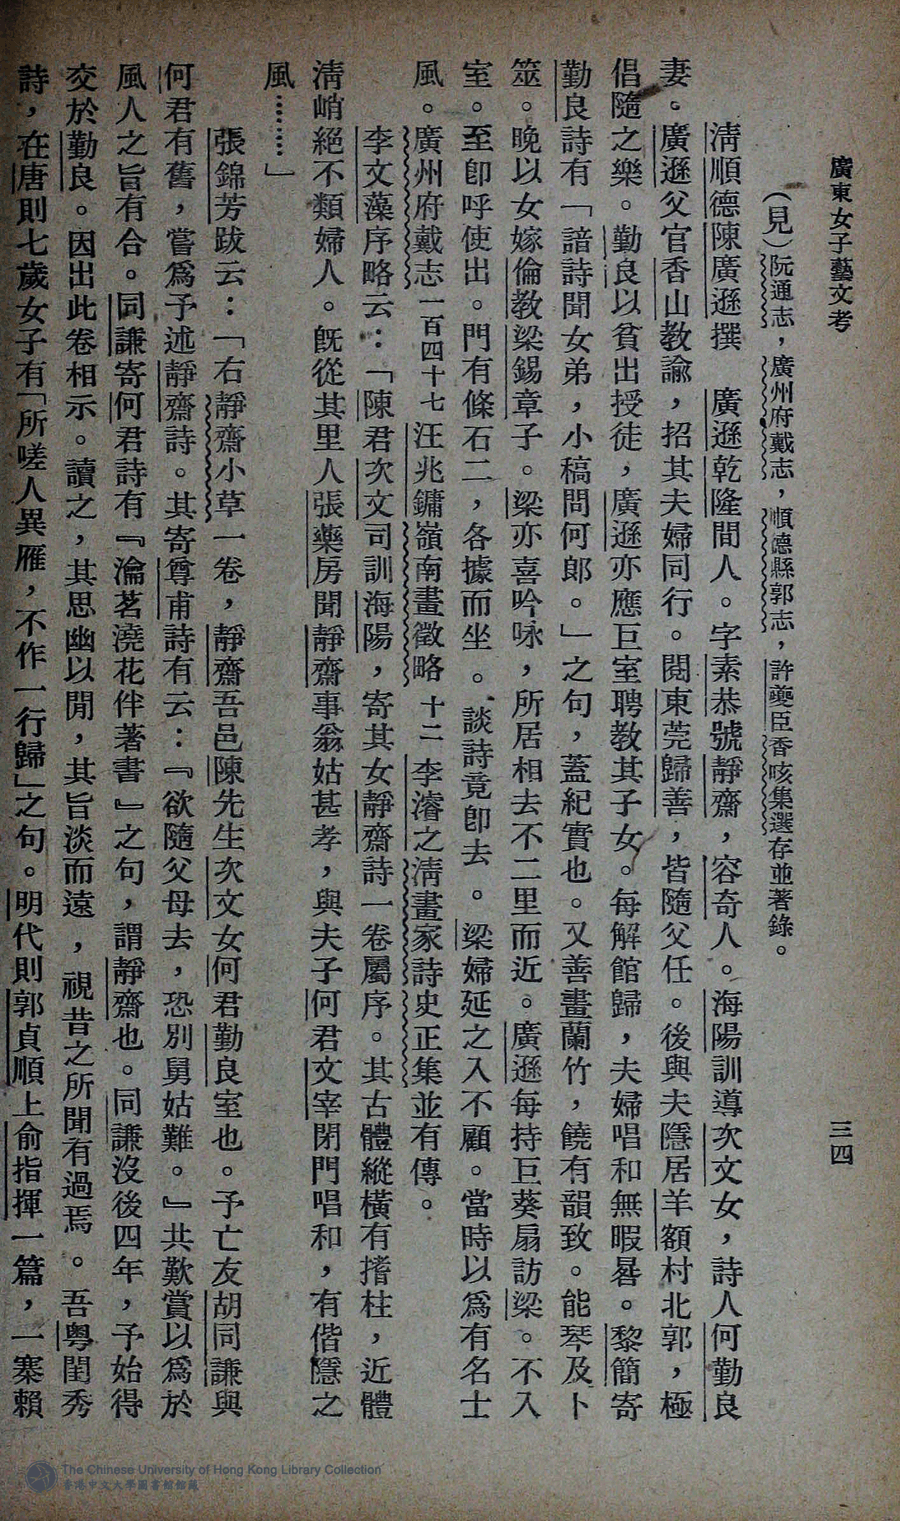 廣東女子藝文考
三四
（見）阮通志，廣州府戴志，順德縣郭志，許夔臣香咳集選存並著錄。
淸順德陳廣遜撰　廣遜乾隆間人。字素恭號靜齋，容奇人。海陽訓導次文女，詩人何勤良
妻。廣遜父官香山教諭，招其夫婦同行。閱東莞歸善，皆隨父任。後與夫隱居羊額村北郭，極
倡隨之樂。勤良以貧出授徒，廣遜亦應巨室聘教其子女。每解館歸，夫婦唱和無暇晷。黎簡寄
勤良詩有「諳詩聞女弟，小稿問何郞。」之句，蓋紀實也。又善畫蘭竹，饒有韻致。能琴及卜
筮。晚以女嫁倫教梁錫章子。梁亦喜吟咏，所居相去不二里而近。廣遜每持巨葵扇訪梁。不入
室。至卽呼使出。門有條石二，各據而坐。談詩竟卽去。梁婦延之入不顧。當時以爲有名士
風。廣州府戴志一百四十七汪兆鏞嶺南畫徵略十二李濬之淸畫家詩史正集並有傳。
李文藻序略云：「陳君次文司訓海陽，寄其女靜齋詩一卷屬序。其古體縱橫有搘柱，近體
淸峭絕不類婦人。旣從其里人張藥房聞靜齋事翁姑甚孝，與夫子何君文宰閉門唱和，有偕隱之
風……」
張錦芳跋云：「右靜齋小草一卷，靜齋吾邑陳先生次文女何君勤良室也。予亡友胡同謙與
何君有舊，嘗爲予述靜齋詩。其寄尊甫詩有云：『欲隨父母去，恐別舅姑難。』共歎賞以爲於
風人之旨有合。同謙寄何君詩有『瀹茗澆花伴著書』之句，謂靜齋也。同謙沒後四年，予始得
交於勤良。因出此卷相示。讀之，其思幽以閒，其旨淡而遠，視昔之所聞有過焉。吾粵閨秀
詩，在唐則七歲女子有「所嗟人異雁，不作一行歸」之句。明代則郭貞順上俞指揮一篇，一寨賴
The Chinese University of Hong Kong Library Collection
香港中文大學圖書館館藏